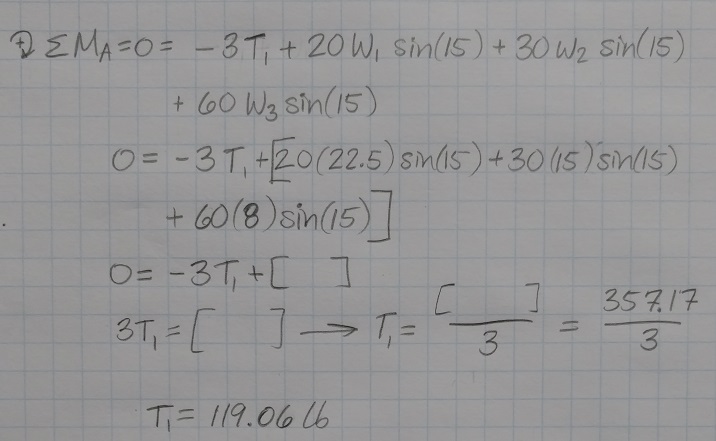 ↻ ΣM_A=0= -3T₁ + 20W₁ sin(15) + 30W₂ sin(15)
+ 60W₃ sin(15)
0= -3T₁+[20(22.5)sin(15)+30(15)sin(15)
+60(8)sin(15)]
0= -3T₁+[ ]
3T₁=[ ] → T₁= [ ]/3 = 357.17/3
T₁= 119.06 lb